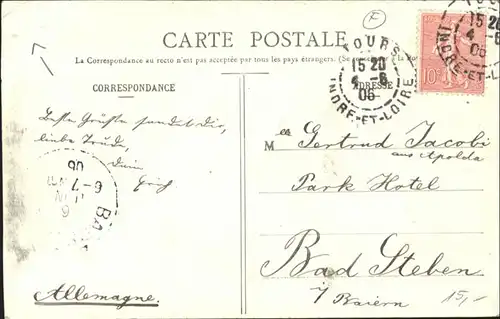 CARTE POSTALE
La Correspondance au recto n'est pas acceptée par tous les pays étrangers. (Se
CORRESPONDANCE
ADRESSE
TOURS
15 20
4 - 6
06
INDRE-ET-LOIRE
TOURS
15 20
4 - 6
06
INDRE-ET-LOIRE
10
Beste Grüsse sendet Dir,
liebe Trude,
Dein
06
6-7
6
BA
Mlle Gertrud Jacobi
aus Apolda
Park Hotel
Bad Steben
i/ Baiern
Allemagne.
15,-
F